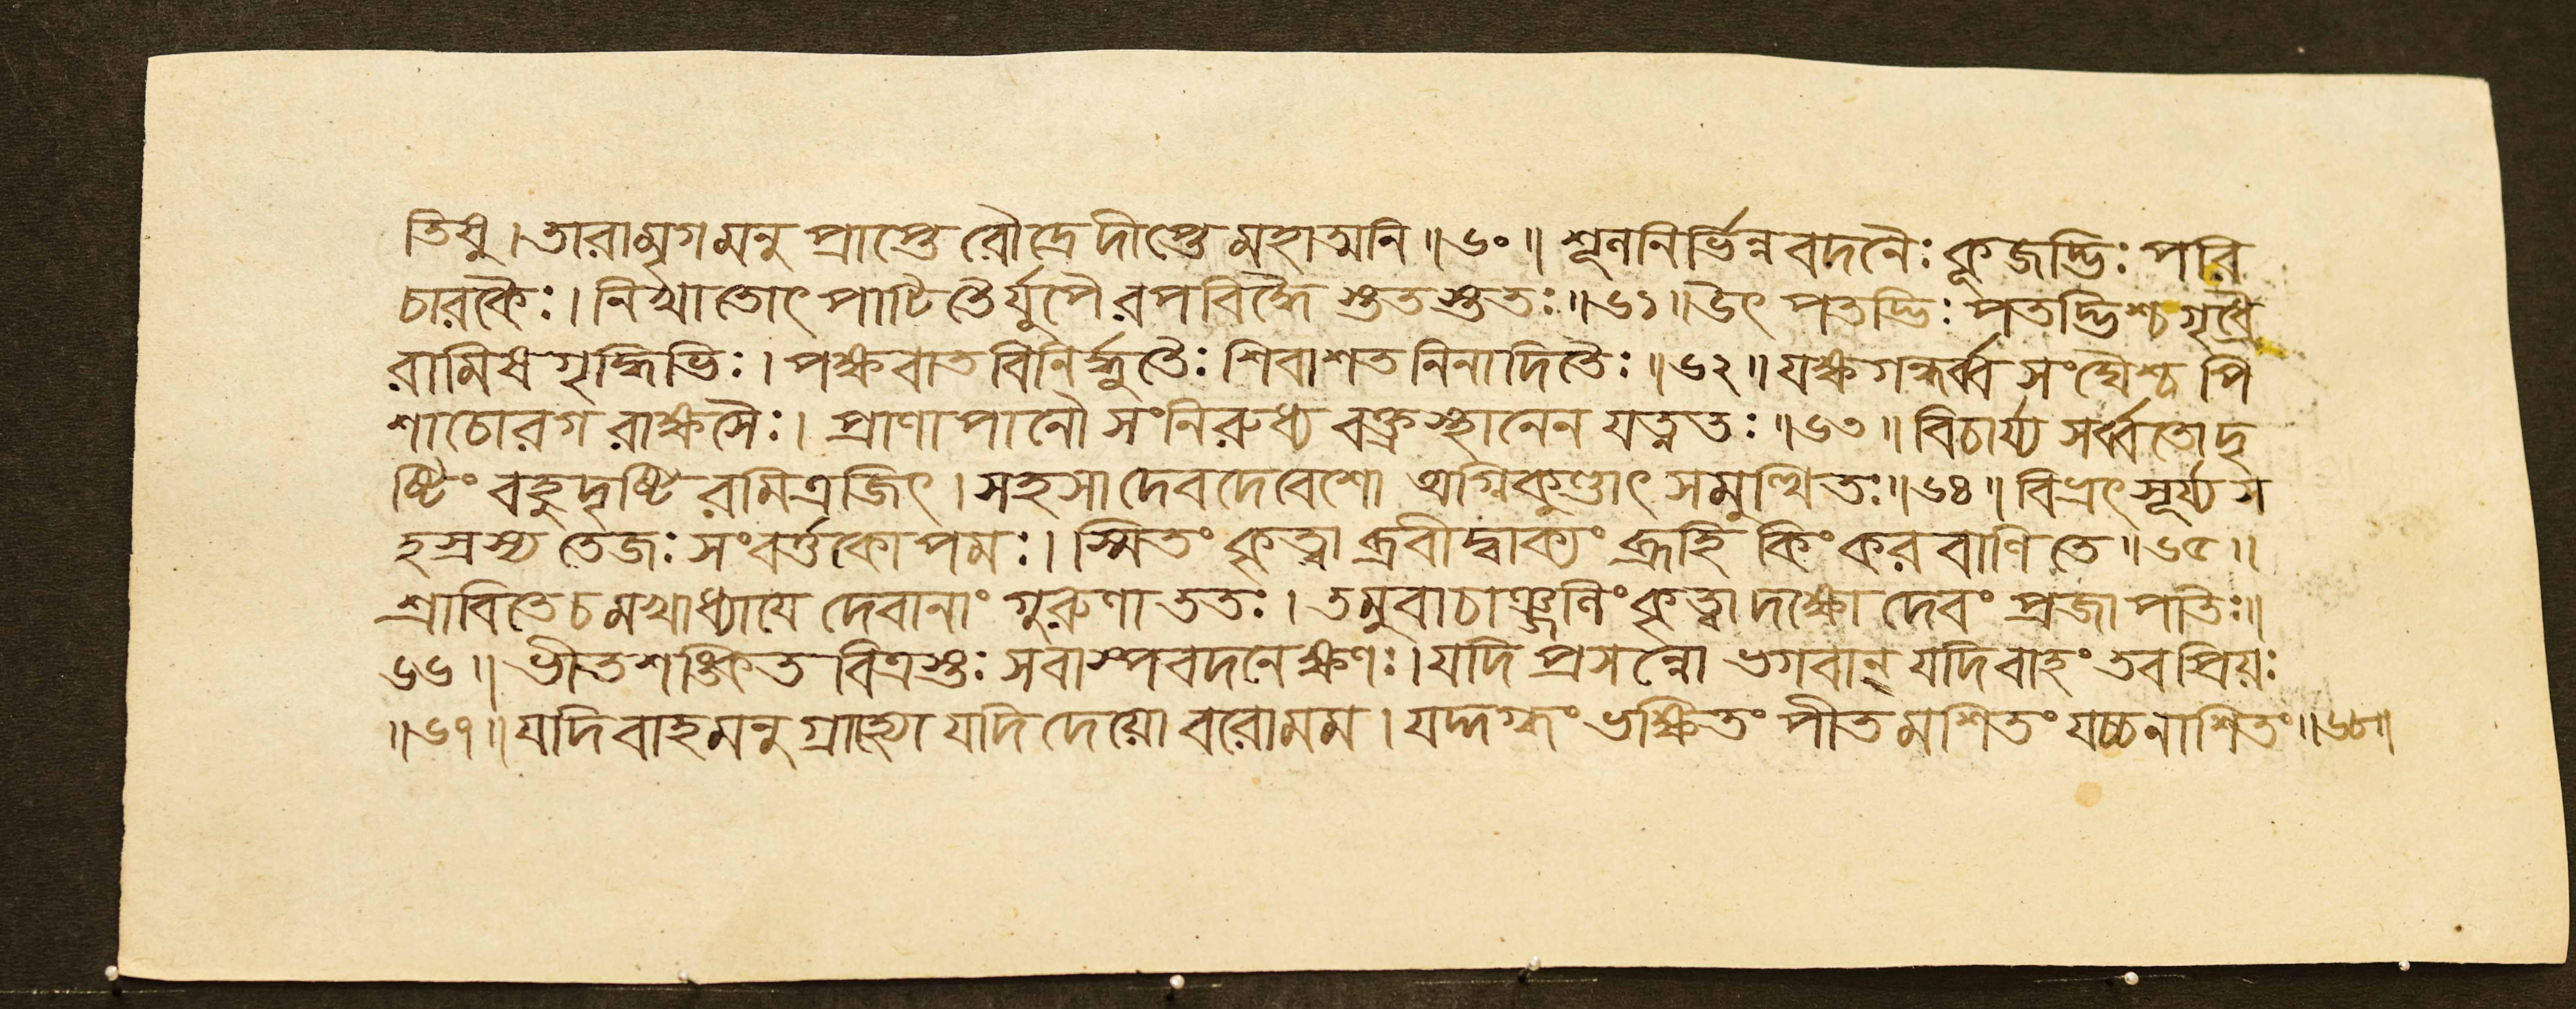 তিষু । তারামৃগমনুপ্রাপ্তে রৌদ্রে দীপ্তে মহাত্মনি ॥ ৬০ ॥ শূলনির্ভিন্নবদনৈঃ কূজদ্ভিঃ পরি
চারকৈঃ । নিখাতোৎপাটিতৈর্যূপৈরপবিদ্ধৈস্ততস্ততঃ ॥ ৬১ ॥ উৎপতদ্ভিঃ পতদ্ভিশ্চ গৃধ্রৈ
রামিষগৃদ্ধিভিঃ । পক্ষবাতবিনির্দ্ধুতৈঃ শিবাশতনিনাদিতৈঃ ॥ ৬২ ॥ যক্ষগন্ধর্ব্বসংঘৈশ্চ পি
শাচোরগরাক্ষসৈঃ । প্রাণাপানৌ সংনিরুধ্য বক্ত্রস্থানেন যত্নতঃ ॥ ৬৩ ॥ বিচার্য্য সর্ব্বতো দৃ
ষ্টিং বহুদৃষ্টিরমিত্রজিৎ । সহসা দেবদেবেশো অগ্নিকুণ্ডাৎ সমুত্থিতঃ ॥ ৬৪ ॥ বিভ্রৎ সূর্য্যস
হস্রস্য তেজঃ সংবর্ত্তকোপমঃ । স্মিতং কৃত্বাব্রবীদ্বাক্যং ব্রূহি কিং করবাণি তে ॥ ৬৫ ॥
শ্রাবিতে চ মখাধ্যায়ে দেবানাং গুরুণা ততঃ । তমুবাচাঞ্জলিং কৃত্বা দক্ষো দেবং প্রজাপতিঃ ॥
৬৬ ॥ ভীতশঙ্কিতবিত্রস্তঃ সবাস্পবদনেক্ষণঃ । যদি প্রসন্নো ভগবান্ যদি বাহং তব প্রিয়ঃ
॥ ৬৭ ॥ যদি বাহমনুগ্রাহ্যো যদি দেয়ো বরো মম । যদ্দগ্ধং ভক্ষিতং পীতমশিতং যচ্চ নাশিতং ॥ ৬৮ ॥